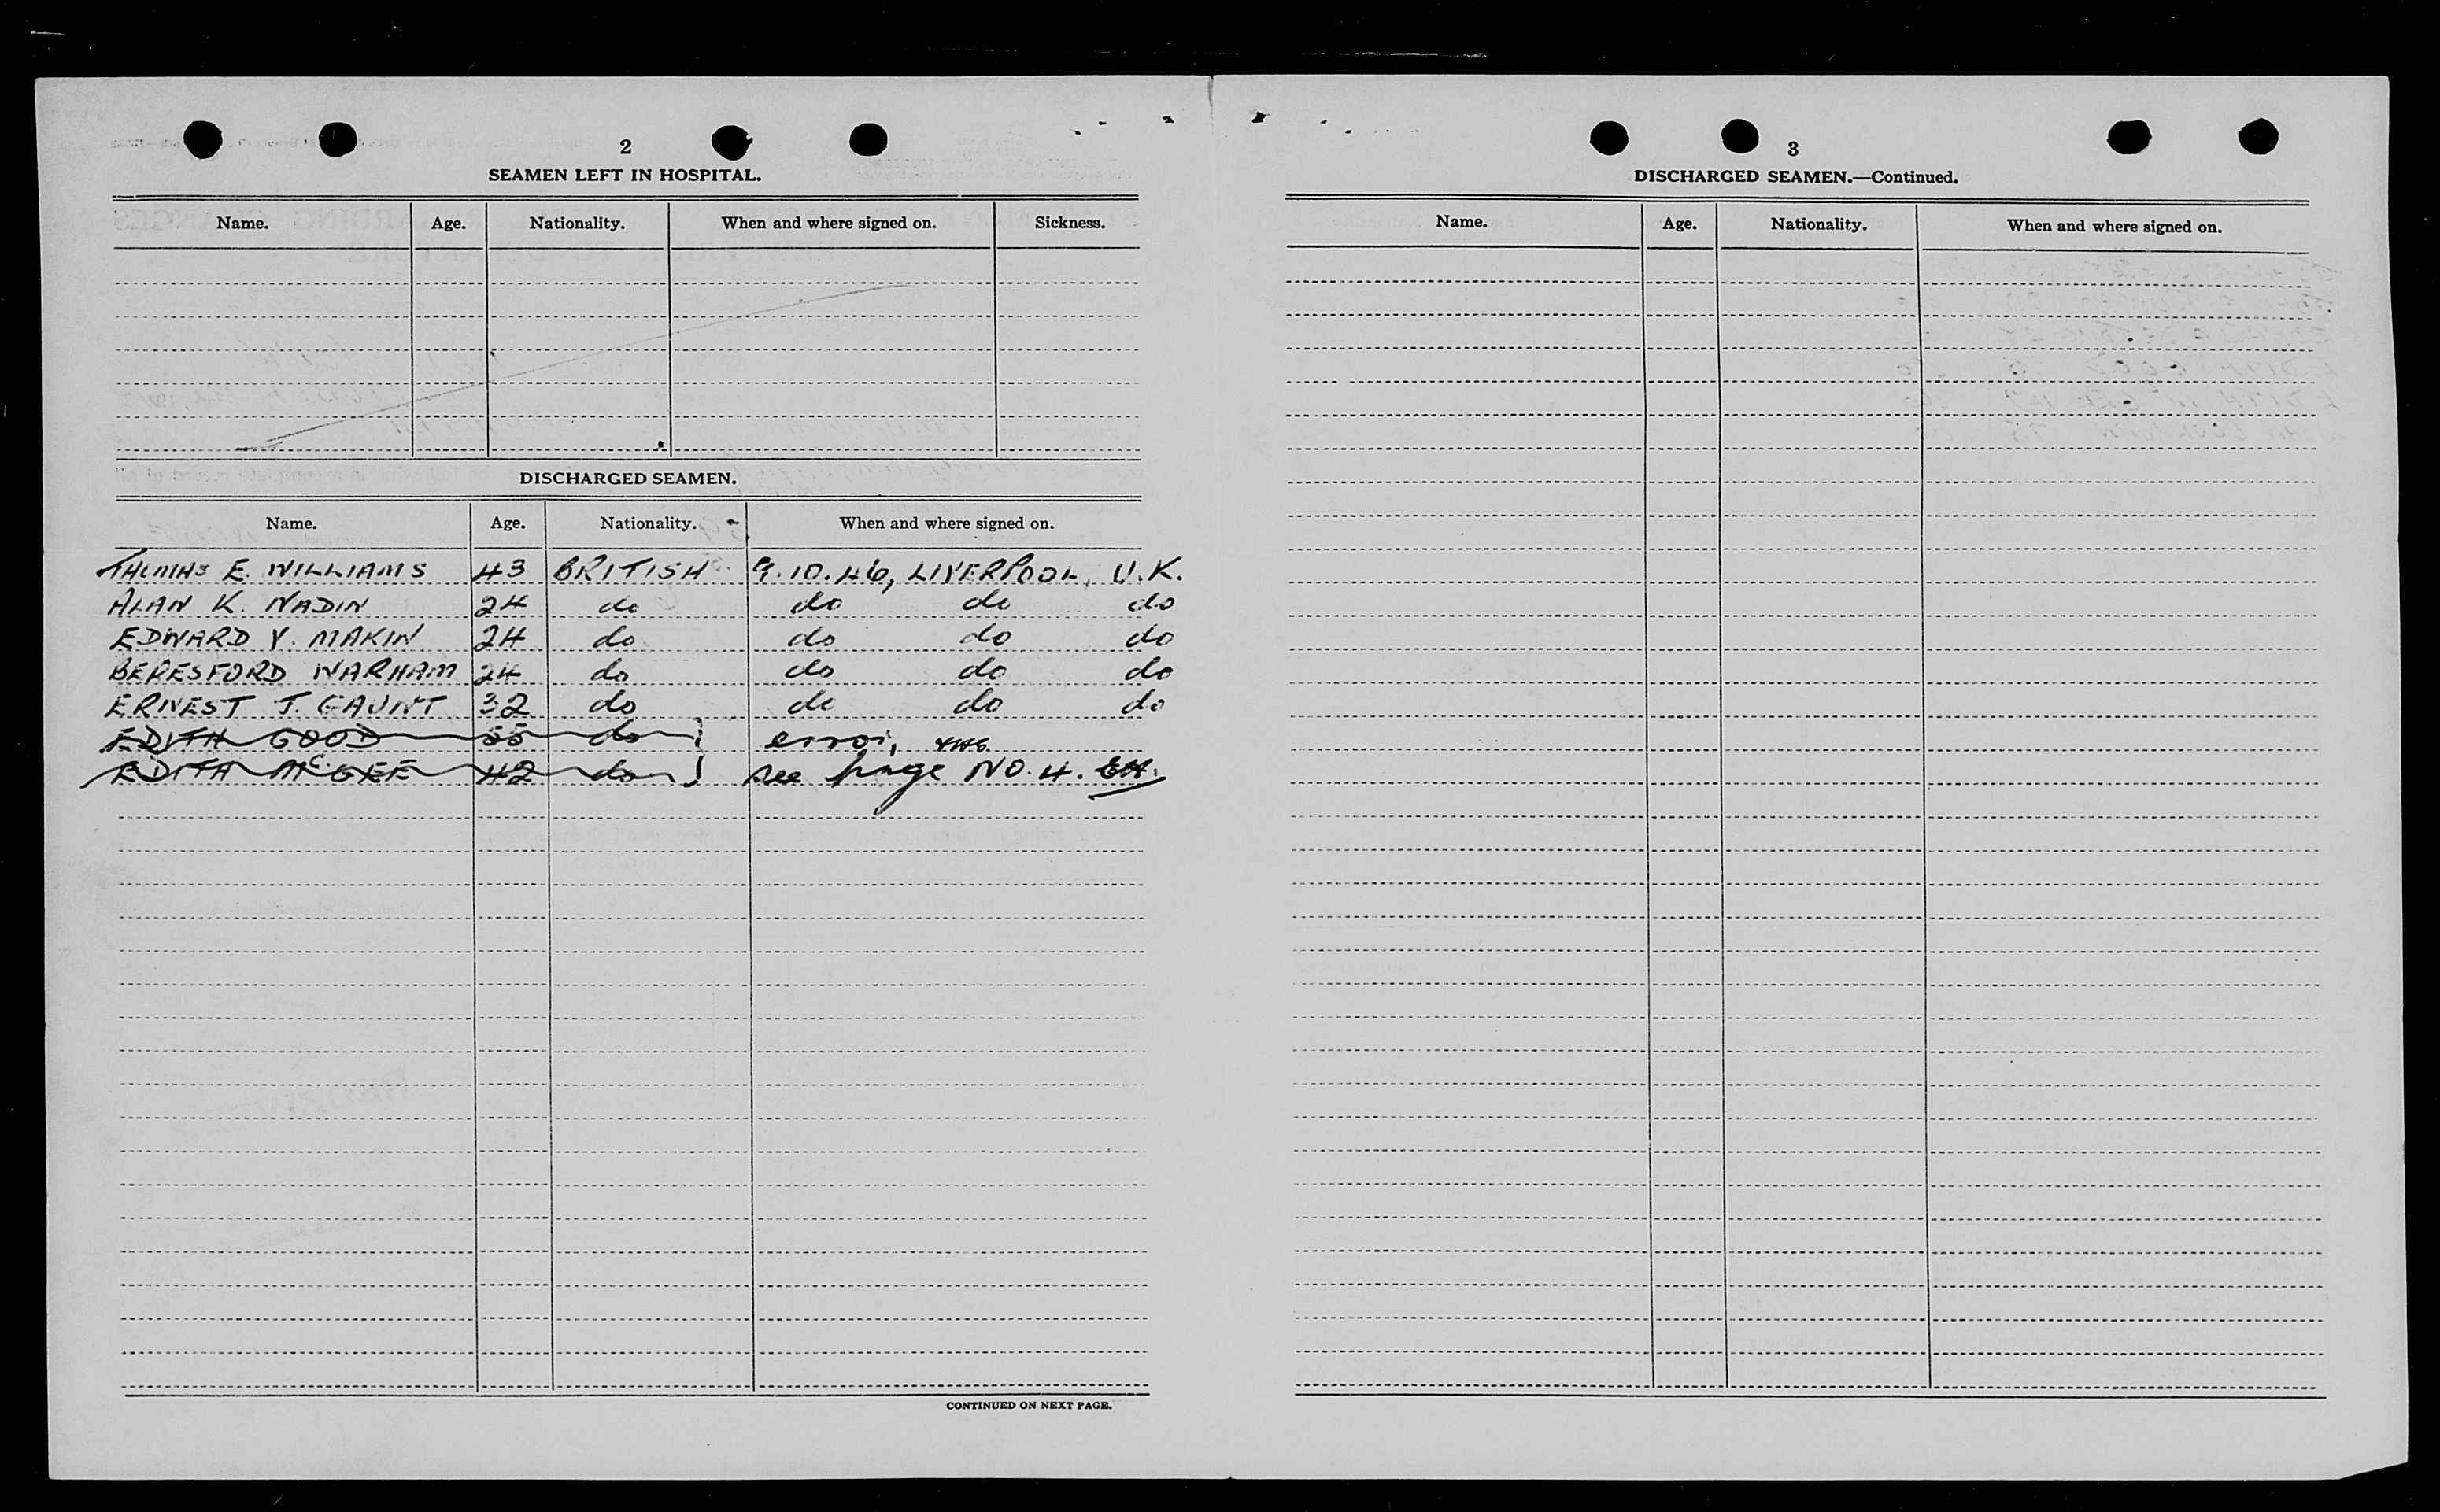 2
SEAMEN LEFT IN HOSPITAL.
Name. Age. Nationality. When and where signed on. Sickness.
DISCHARGED SEAMEN.
Name. Age. Nationality. When and where signed on.
THOMAS E. WILLIAMS 43 BRITISH 9.10.46, LIVERPOOL, U.K.
ALAN K. NADIN 24 do do do do
EDWARD V. MAKIN 24 do do do do
BERESFORD WARHAM 24 do do do do
ERNEST J. GAUNT 32 do do do do
EDITH GOOD 55 do error,
EDITH McGEE 42 do see page NO. 4. EH.
CONTINUED ON NEXT PAGE.
3
DISCHARGED SEAMEN.—Continued.
Name. Age. Nationality. When and where signed on.